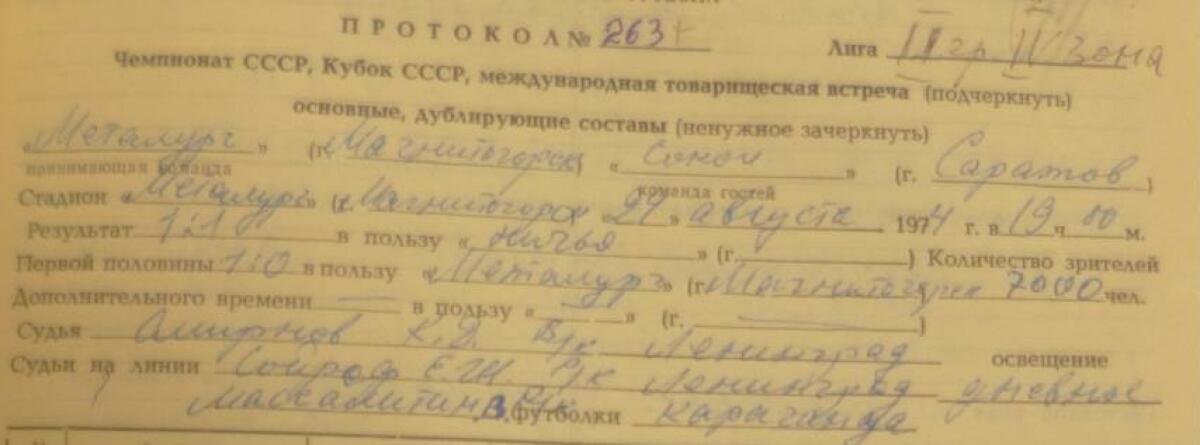 ПРОТОКОЛ № 263 Лига II гр IV зона
Чемпионат СССР, Кубок СССР, международная товарищеская встреча (подчеркнуть)
основные, дублирующие составы (ненужное зачеркнуть)
«Металург» (г. Магнитогорск) «Сокол» (г. Саратов)
принимающая команда команда гостей
Стадион «Металург» (г. Магнитогорск «21» августа 1974 г. в 19 ч 00 м.
Результат 1:1 в пользу «Ничья» (г. ) Количество зрителей
Первой половины 1:0 в пользу «Металург» (г. Магнитогорск 7000 чел.
Дополнительного времени — в пользу «—» (г. —)
Судья Смирнов К.Д. В/к Ленинград освещение
Судьи на линии Е.Ш. Р/к Ленинград дневное
футболки Караганда